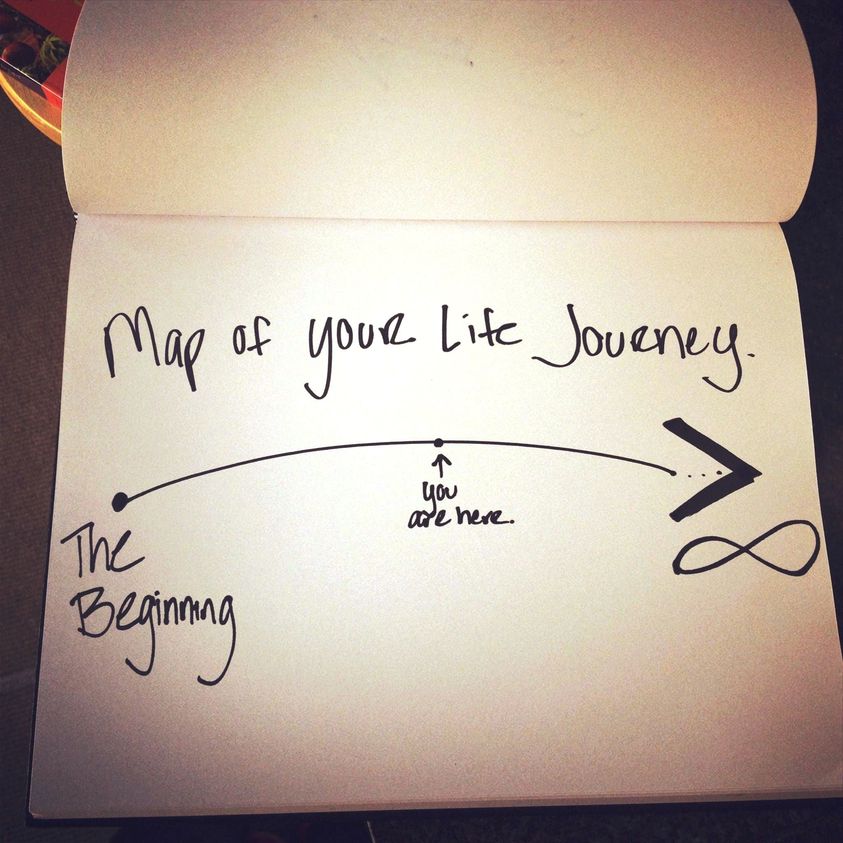 Map of your Life Journey.
you
are here.
The
Beginning
∞